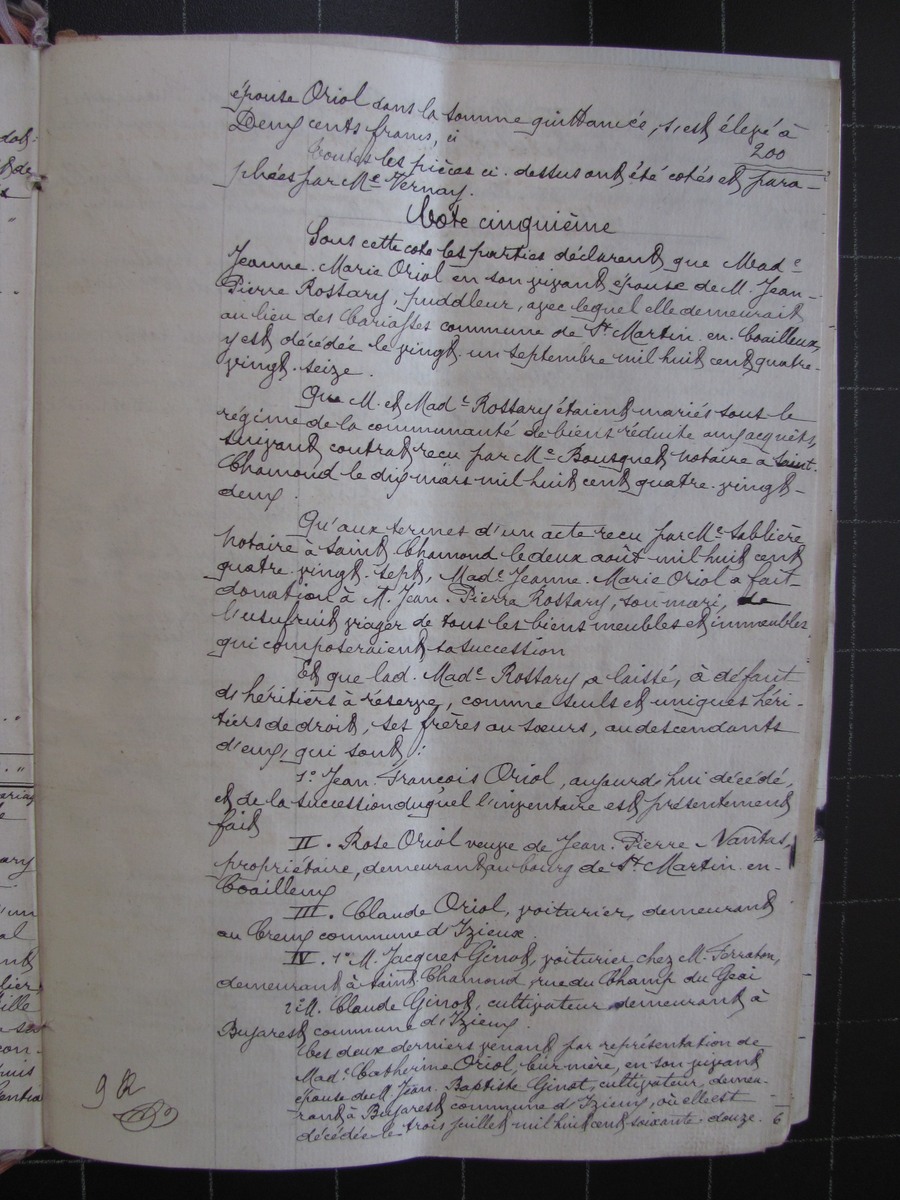 épouse Oriol dans la somme quittancée, s'est élevé à
Deux cents francs, ci 200
Toutes les pièces ci-dessus ont été cotés et para-
phées par Me Vernay.
Cote cinquième
Sous cette cote les parties déclarent que Made
Jeanne-Marie Oriol en son vivant épouse de M. Jean-
Pierre Rossary, puddleur, avec lequel elle demeurait
au lieu des Cariasses commune de St Martin-en-Coailleux,
y est décédée le vingt-un septembre mil huit cent quatre-
vingt-seize.
Que M. et Made Rossary étaient mariés sous le
régime de la communauté de biens réduite aux acquêts,
suivant contrat reçu par Me Bousquet notaire à Saint-
Chamond le dix mars mil huit cent quatre-vingt-
deux.
Qu'aux termes d'un acte reçu par Me Sablière
notaire à Saint Chamond le deux août mil huit cent
quatre-vingt-sept, Made Jeanne-Marie Oriol a fait
donation à M. Jean-Pierre Rossary, son mari, de
l'usufruit viager de tous les biens meubles et immeubles
qui composeraient sa succession
Et que lad. Made Rossary a laissé, à défaut
d'héritiers à réserve, comme seuls et uniques héri-
tiers de droit, ses frères au sœurs, au descendants
d'eux, qui sont:
1° Jean-François Oriol, aujourd'hui décédé,
et de la succession duquel l'inventaire est présentement
fait
II. Rose Oriol veuve de Jean-Pierre Nantas,
propriétaire, demeurant au bourg de St Martin-en-
Coailleux
III. Claude Oriol, voiturier, demeurant
au Creux commune d'Izieux.
IV. 1° M. Jacques Ginot, voiturier chez M. Ferraton,
demeurant à Saint-Chamond, rue du Champ du Geai
2° M. Claude Ginot, cultivateur demeurant à
Bujarest commune d'Izieux.
Ces deux derniers venant par représentation de
Made Catherine Oriol, leur mère, en son vivant
épouse de M. Jean-Baptiste Ginot, cultivateur, demeu-
rant à Bujarest commune d'Izieux, où elle est
décédée le trois juillet mil huit cent soixante-douze. 6